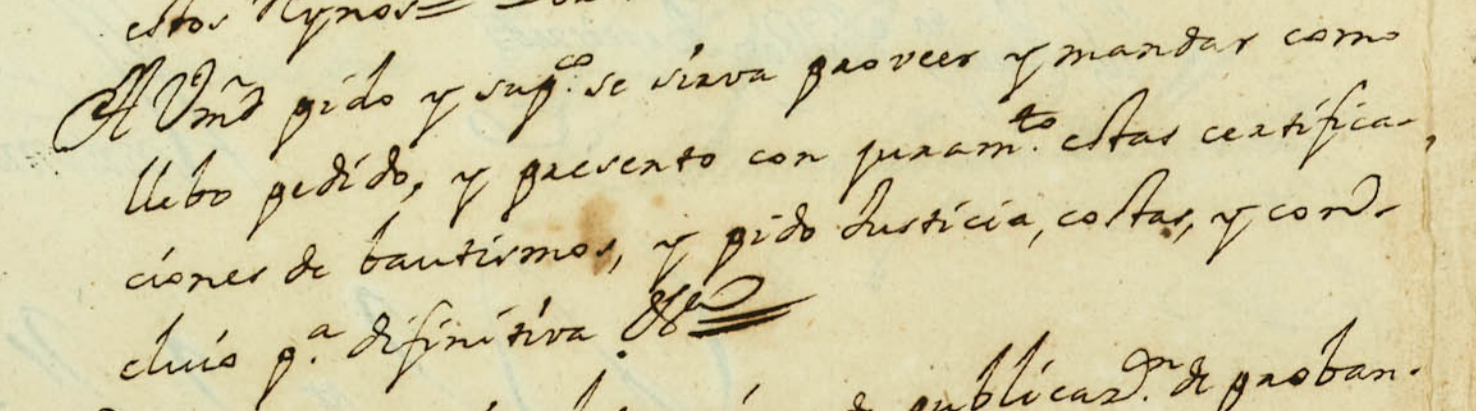 estos Rynos
A Vmd pido y supco. se sirva proveer y mandar como
llebo pedido, y presento con juramto. estas certifica-
ciones de bautismos, y pido Justicia, costas, y con-
cluio pa. difinitiva &a
publicazn. de proban-